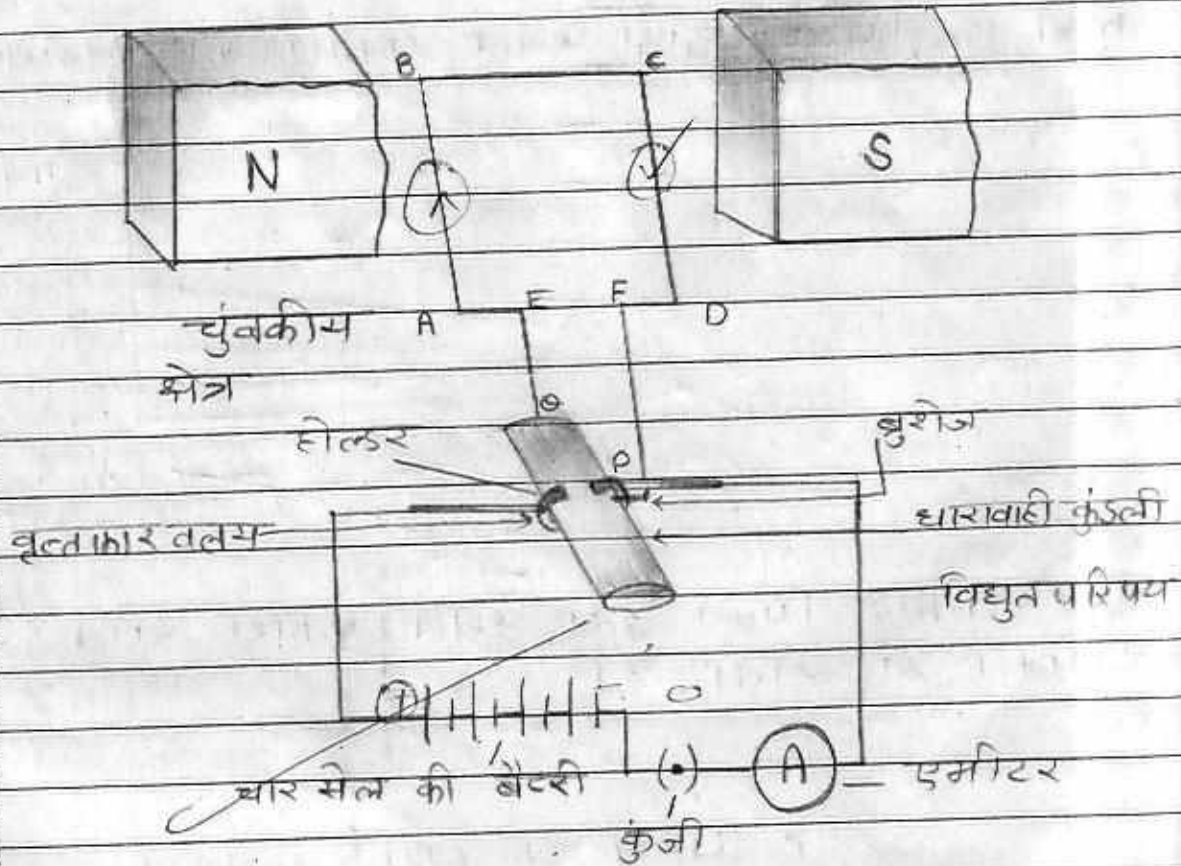 B C
N S
A E F D
चुंबकीय
क्षेत्र
Q
होल्डर
बुशेज
P
वृत्ताकार वलय
धारावाही कुंडली
विद्युत परिपथ
चार सेल की बैटरी
(•) A एमीटर
कुंजी